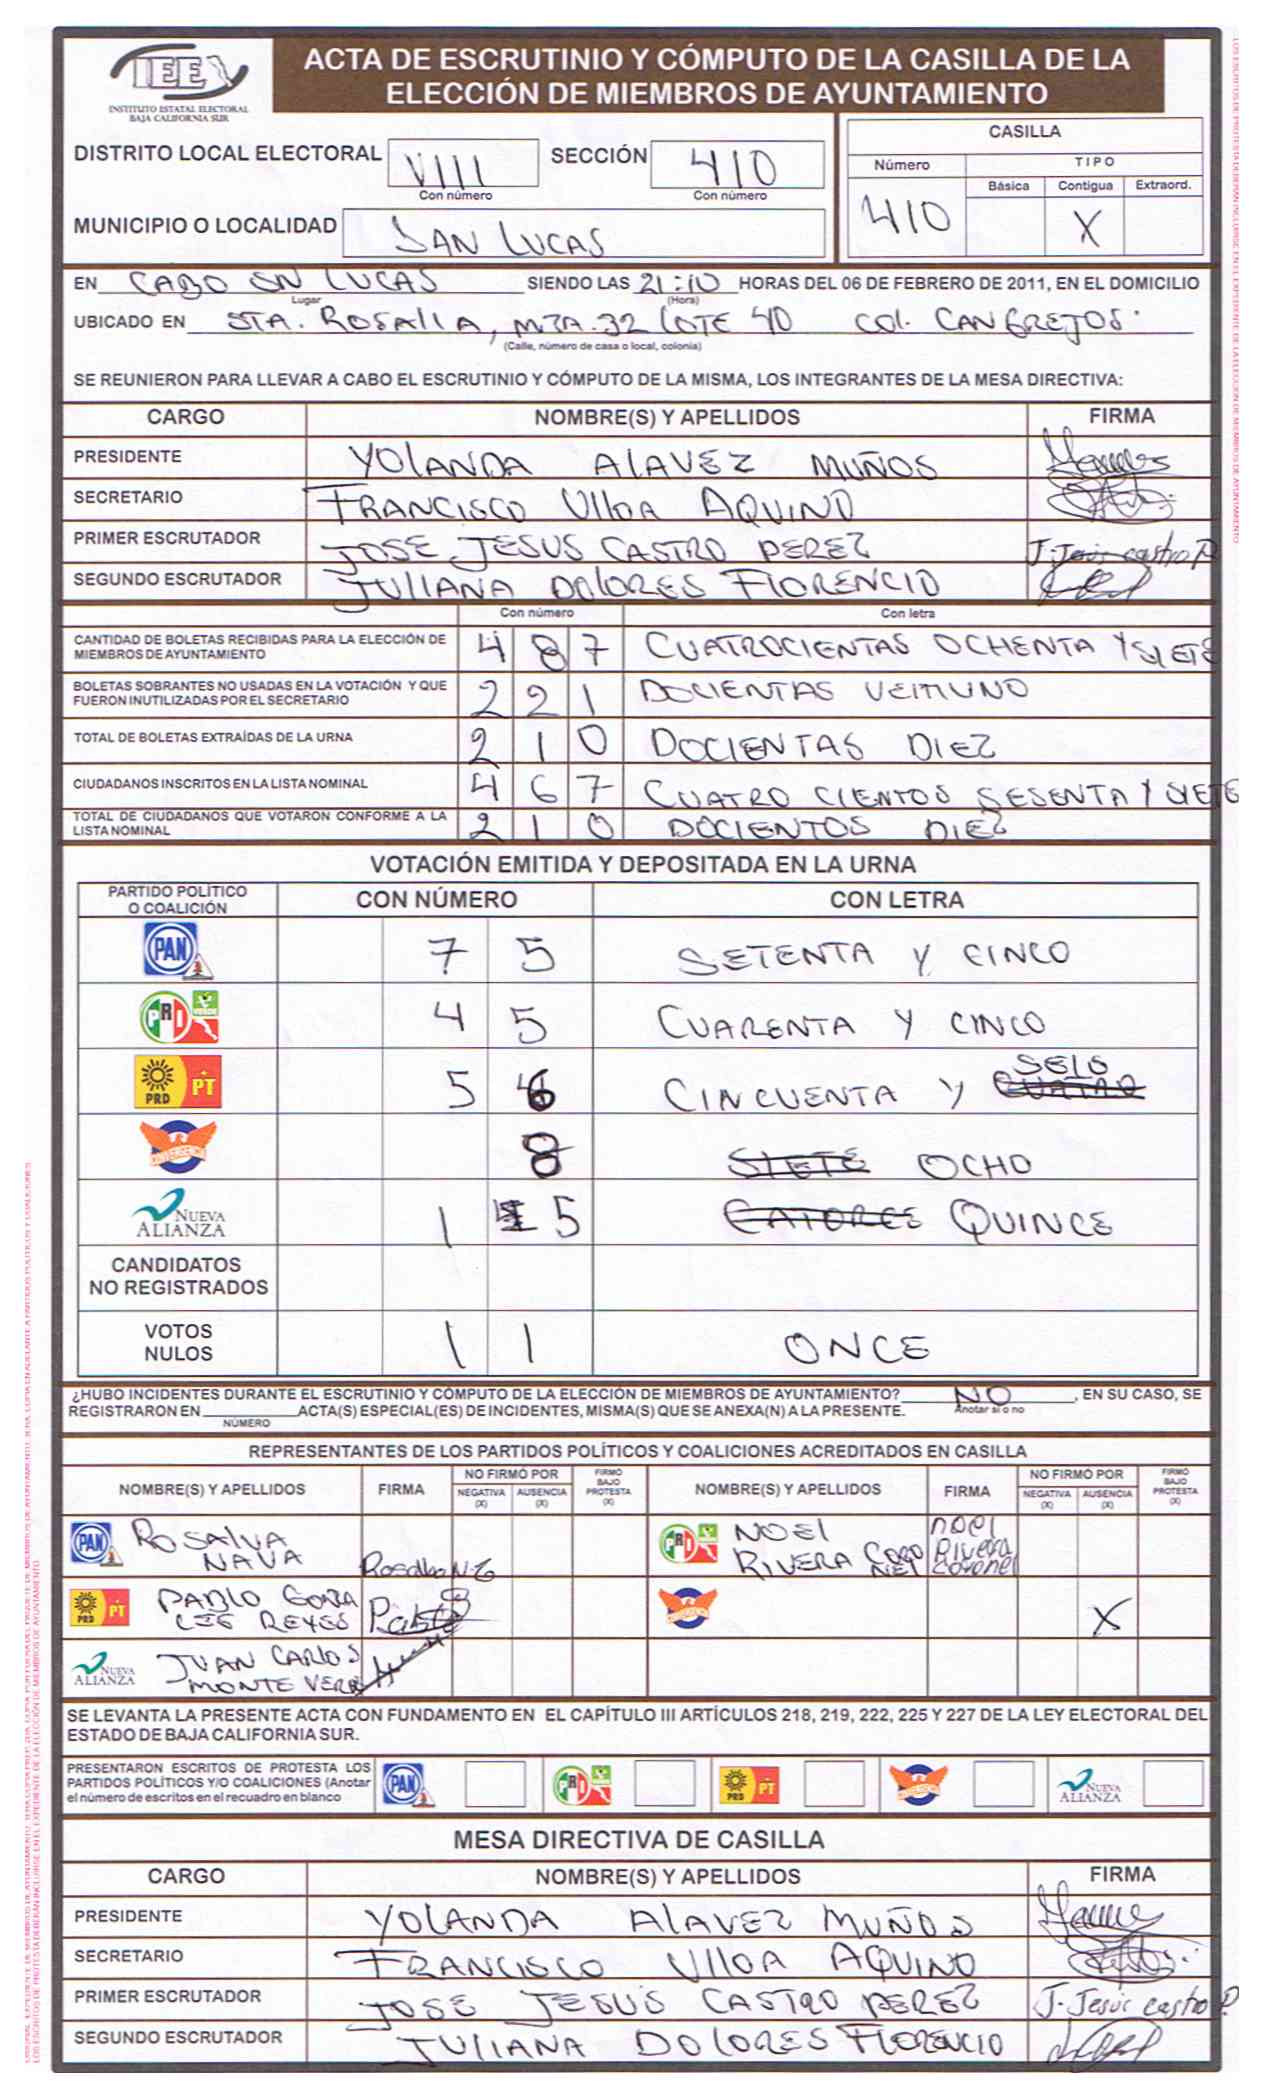 IEEX
INSTITUTO ESTATAL ELECTORAL
BAJA CALIFORNIA SUR
ACTA DE ESCRUTINIO Y CÓMPUTO DE LA CASILLA DE LA
ELECCIÓN DE MIEMBROS DE AYUNTAMIENTO
DISTRITO LOCAL ELECTORAL VIII SECCIÓN 410
Con número Con número
MUNICIPIO O LOCALIDAD SAN LUCAS
CASILLA
Número TIPO
Básica Contigua Extraord.
410 X
EN CABO SN LUCAS SIENDO LAS 21:10 HORAS DEL 06 DE FEBRERO DE 2011, EN EL DOMICILIO
Lugar (Hora)
UBICADO EN STA. ROSALIA, MZA. 32 LOTE 40 COL. CANGREJOS.
(Calle, número de casa o local, colonia)
SE REUNIERON PARA LLEVAR A CABO EL ESCRUTINIO Y CÓMPUTO DE LA MISMA, LOS INTEGRANTES DE LA MESA DIRECTIVA:
CARGO NOMBRE(S) Y APELLIDOS FIRMA
PRESIDENTE YOLANDA ALAVEZ MUÑOS
SECRETARIO FRANCISCO UlloA AQUINO
PRIMER ESCRUTADOR JOSE JESUS CASTRO PEREZ J. Jesús castro P.
SEGUNDO ESCRUTADOR JULIANA DOLORES FLORENCIO
Con número Con letra
CANTIDAD DE BOLETAS RECIBIDAS PARA LA ELECCIÓN DE
MIEMBROS DE AYUNTAMIENTO 4 8 7 CUATROCIENTAS OCHENTA Y SIETE
BOLETAS SOBRANTES NO USADAS EN LA VOTACIÓN Y QUE
FUERON INUTILIZADAS POR EL SECRETARIO 2 2 1 DOCIENTAS VEITIUNO
TOTAL DE BOLETAS EXTRAÍDAS DE LA URNA 2 1 0 DOCIENTAS DIEZ
CIUDADANOS INSCRITOS EN LA LISTA NOMINAL 4 6 7 CUATRO CIENTOS SESENTA Y SIETE
TOTAL DE CIUDADANOS QUE VOTARON CONFORME A LA
LISTA NOMINAL 2 1 0 DOCIENTOS DIEZ
VOTACIÓN EMITIDA Y DEPOSITADA EN LA URNA
PARTIDO POLÍTICO
O COALICIÓN CON NÚMERO CON LETRA
PAN 7 5 SETENTA Y CINCO
PRI VERDE 4 5 CUARENTA Y CINCO
PRD PT 5 6 CINCUENTA Y CUATRO SEIS
CONVERGENCIA 8 SIETE OCHO
NUEVA ALIANZA 1 4 5 CATORCE QUINCE
CANDIDATOS
NO REGISTRADOS
VOTOS
NULOS 1 1 ONCE
¿HUBO INCIDENTES DURANTE EL ESCRUTINIO Y CÓMPUTO DE LA ELECCIÓN DE MIEMBROS DE AYUNTAMIENTO? NO, EN SU CASO, SE
REGISTRARON EN ACTA(S) ESPECIAL(ES) DE INCIDENTES, MISMA(S) QUE SE ANEXA(N) A LA PRESENTE. Anotar si o no
NÚMERO
REPRESENTANTES DE LOS PARTIDOS POLÍTICOS Y COALICIONES ACREDITADOS EN CASILLA
NOMBRE(S) Y APELLIDOS FIRMA NO FIRMÓ POR NEGATIVA (X) AUSENCIA (X) FIRMÓ BAJO PROTESTA (X) NOMBRE(S) Y APELLIDOS FIRMA NO FIRMÓ POR NEGATIVA (X) AUSENCIA (X) FIRMÓ BAJO PROTESTA (X)
PAN ROSALVA NAVA Rosalba N.Z
PRI VERDE NOEl RIVERA CORONEL noel Rivera coronel
PRD PT PABLO GONZALES REYES Pablo
CONVERGENCIA X
NUEVA ALIANZA JUAN CARLOS MONTE VERDE
SE LEVANTA LA PRESENTE ACTA CON FUNDAMENTO EN EL CAPÍTULO III ARTÍCULOS 218, 219, 222, 225 Y 227 DE LA LEY ELECTORAL DEL
ESTADO DE BAJA CALIFORNIA SUR.
PRESENTARON ESCRITOS DE PROTESTA LOS
PARTIDOS POLÍTICOS Y/O COALICIONES (Anotar
el número de escritos en el recuadro en blanco
PAN PRI VERDE PRD PT CONVERGENCIA NUEVA ALIANZA
MESA DIRECTIVA DE CASILLA
CARGO NOMBRE(S) Y APELLIDOS FIRMA
PRESIDENTE YOLANDA ALAVEZ MUÑOS
SECRETARIO FRANCISCO UlloA AQUINO
PRIMER ESCRUTADOR JOSE JESUS CASTRO PEREZ J. Jesús castro P.
SEGUNDO ESCRUTADOR JULIANA DOLORES FLORENCIO